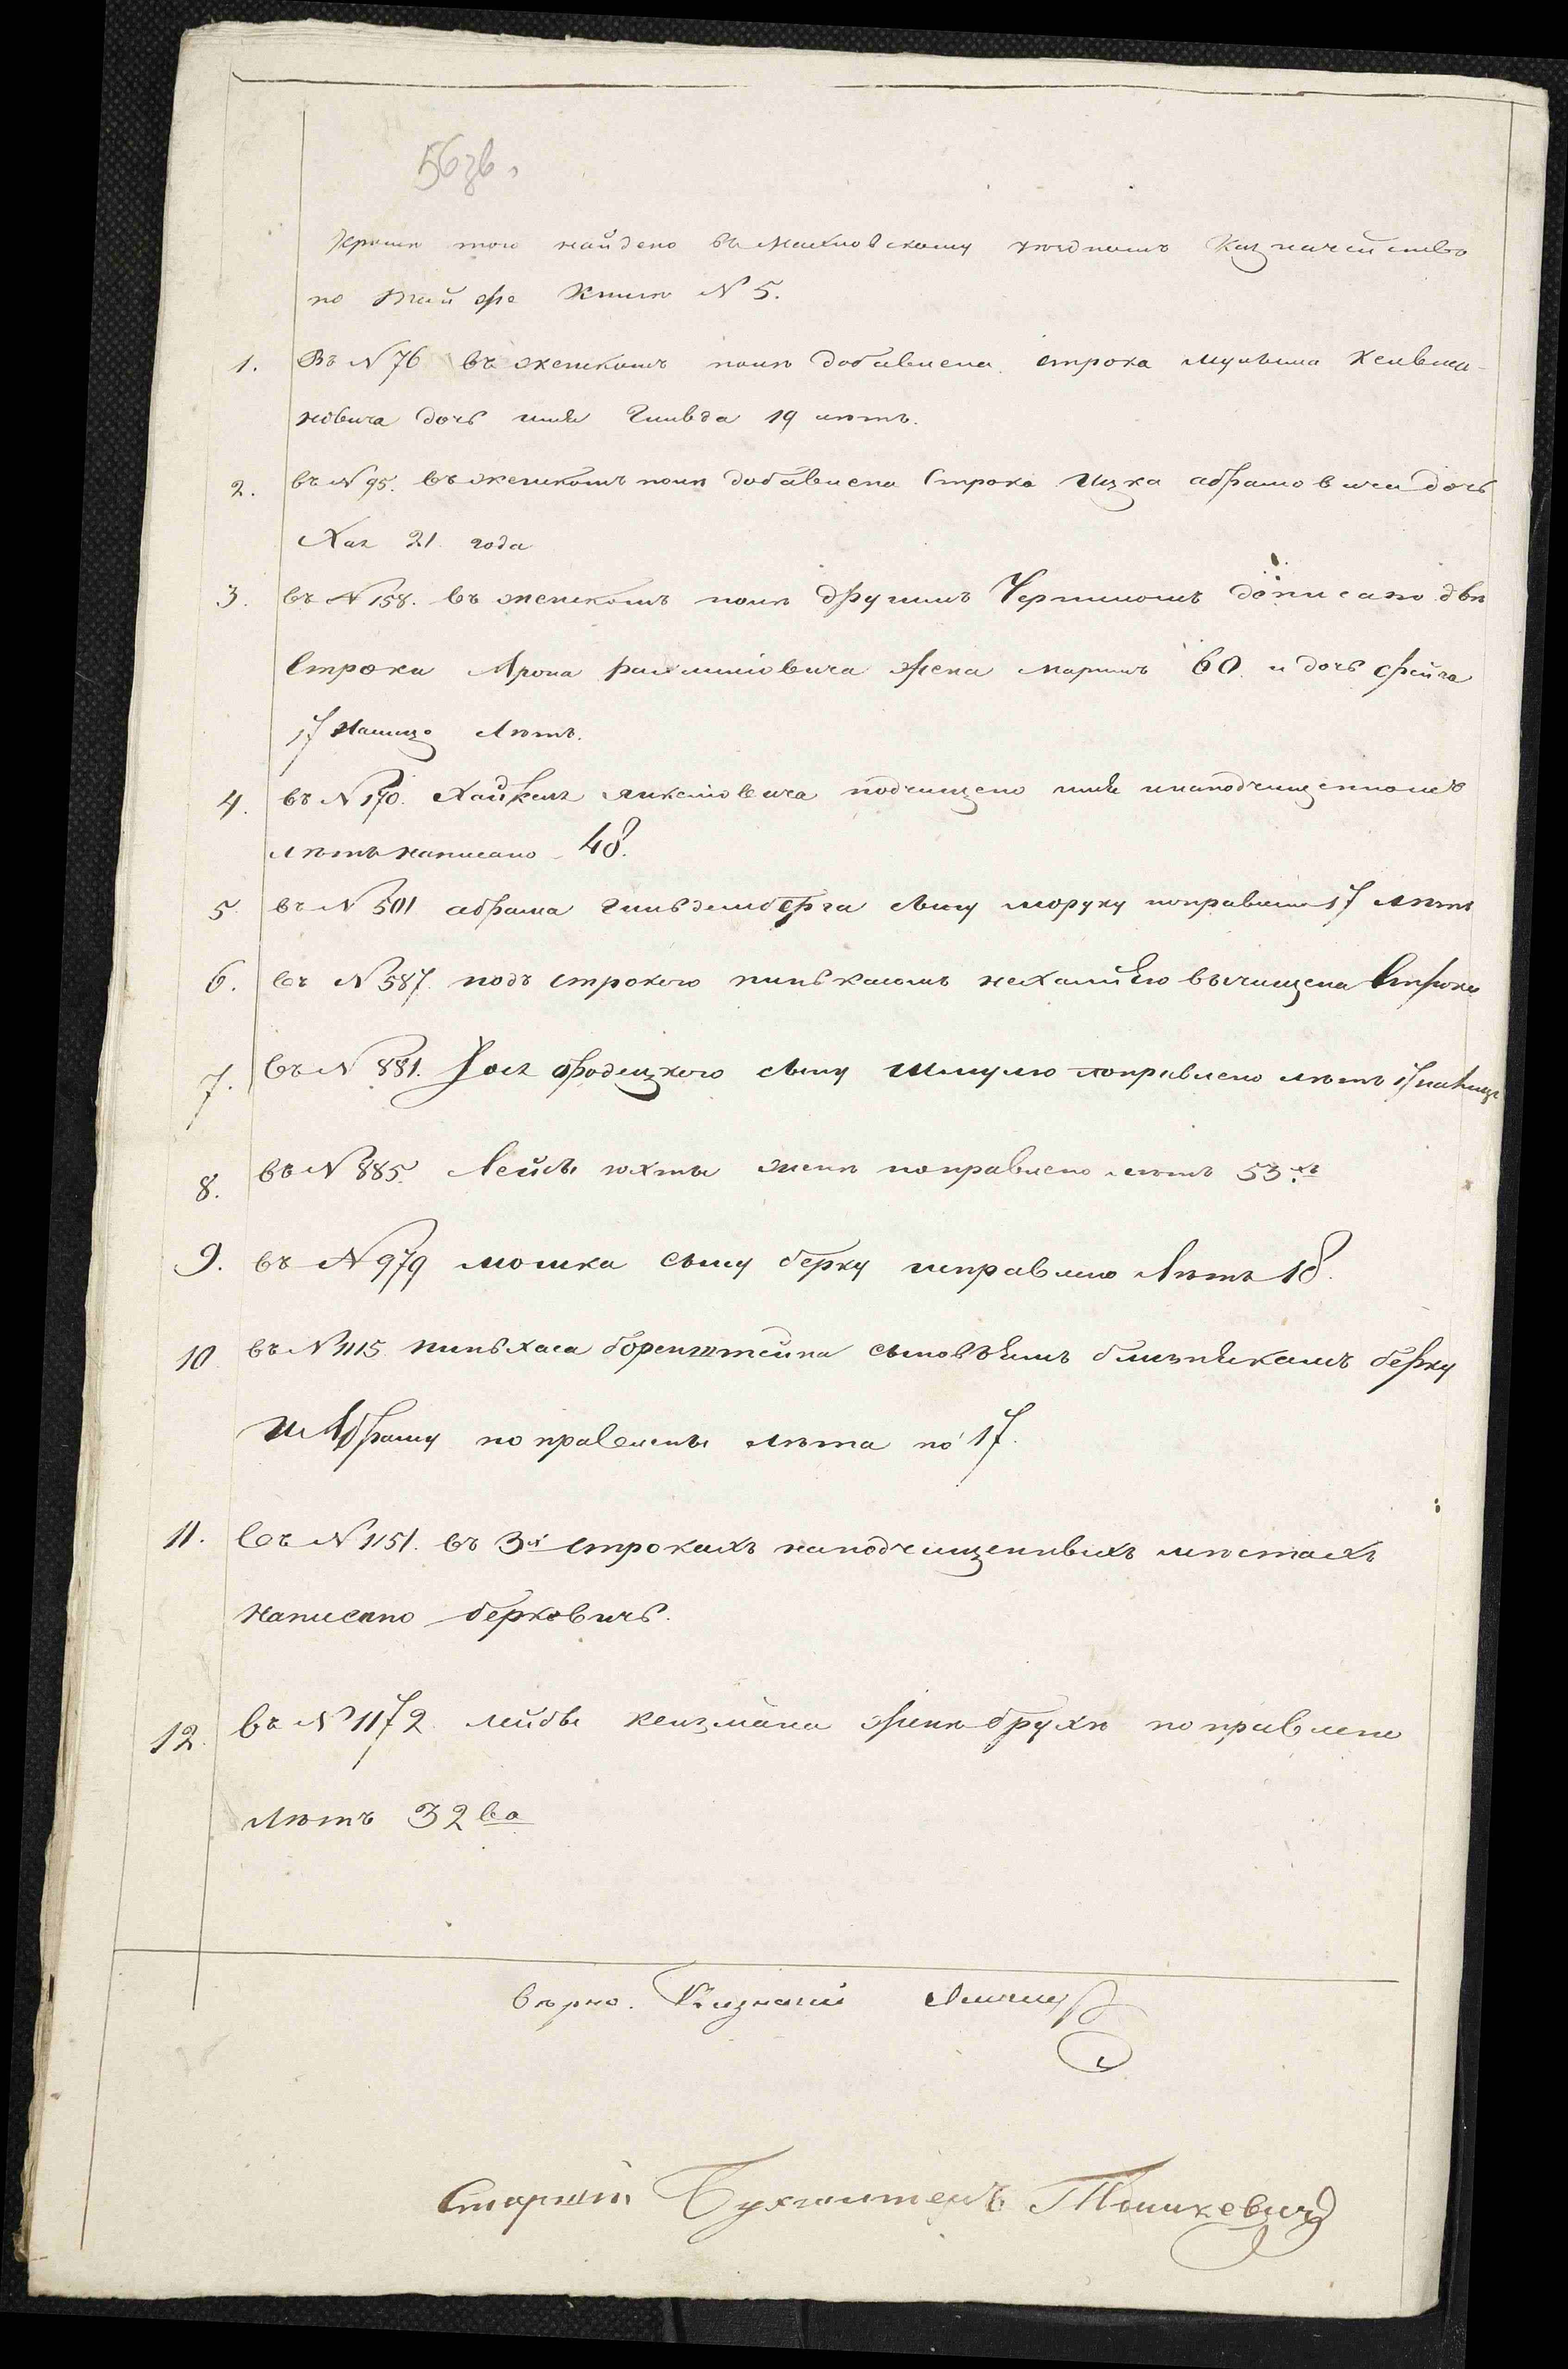 56 зв.
Кромѣ того найдено въ Махновскому уѣздномъ Казначействѣ
по той же Книгѣ N 5.
1. Въ N 76 въ женскомъ полѣ добавлена строка Мульшма Хельма-
новича дочь имя Гинда 19 лѣтъ.
2. въ N 95. въ женскомъ полѣ добавлена Строка Ицка абрамовича дочь
Хая 21 года
3. въ N 158. въ женскомъ полѣ другимъ Черниломъ дописано двѣ
Строки Арона рахмиловича Жена маримъ 60. и дочь фейга
17 Лѣтъ.
4. въ N 170. Хайкелъ янкеловича подчищено имя и на подчищенномъ
лѣтъ написано 48.
5 въ N 501 абрама гольденберга сыну моруху поправлено 17 лѣтъ
6. въ N 587. подъ строкою пинькасомъ нехаміею вычищена Строка
7. въ N 881. Іося бродецкого сыну Шмулю поправлено лѣтъ 17
8. въ N 885. Лейбы юхты женѣ поправлено лѣтъ 53.хъ
9. въ N 979 мошка сыну берку исправлено Лѣтъ 18.
10 въ N 1115 пиньхаса боренштейна сыновьямъ близнякамъ берку
и Абраму поправлены лѣта по 17.
11. въ N 1151. въ 3х строкахъ на подчищенныхъ мѣстахъ
написано берковичъ.
12. въ N 1172. лейбы кельмана женѣ брухѣ поправлено
лѣтъ 32ва
вѣрно. Казначей
Старшій Бухгалтеръ Тышкевичъ